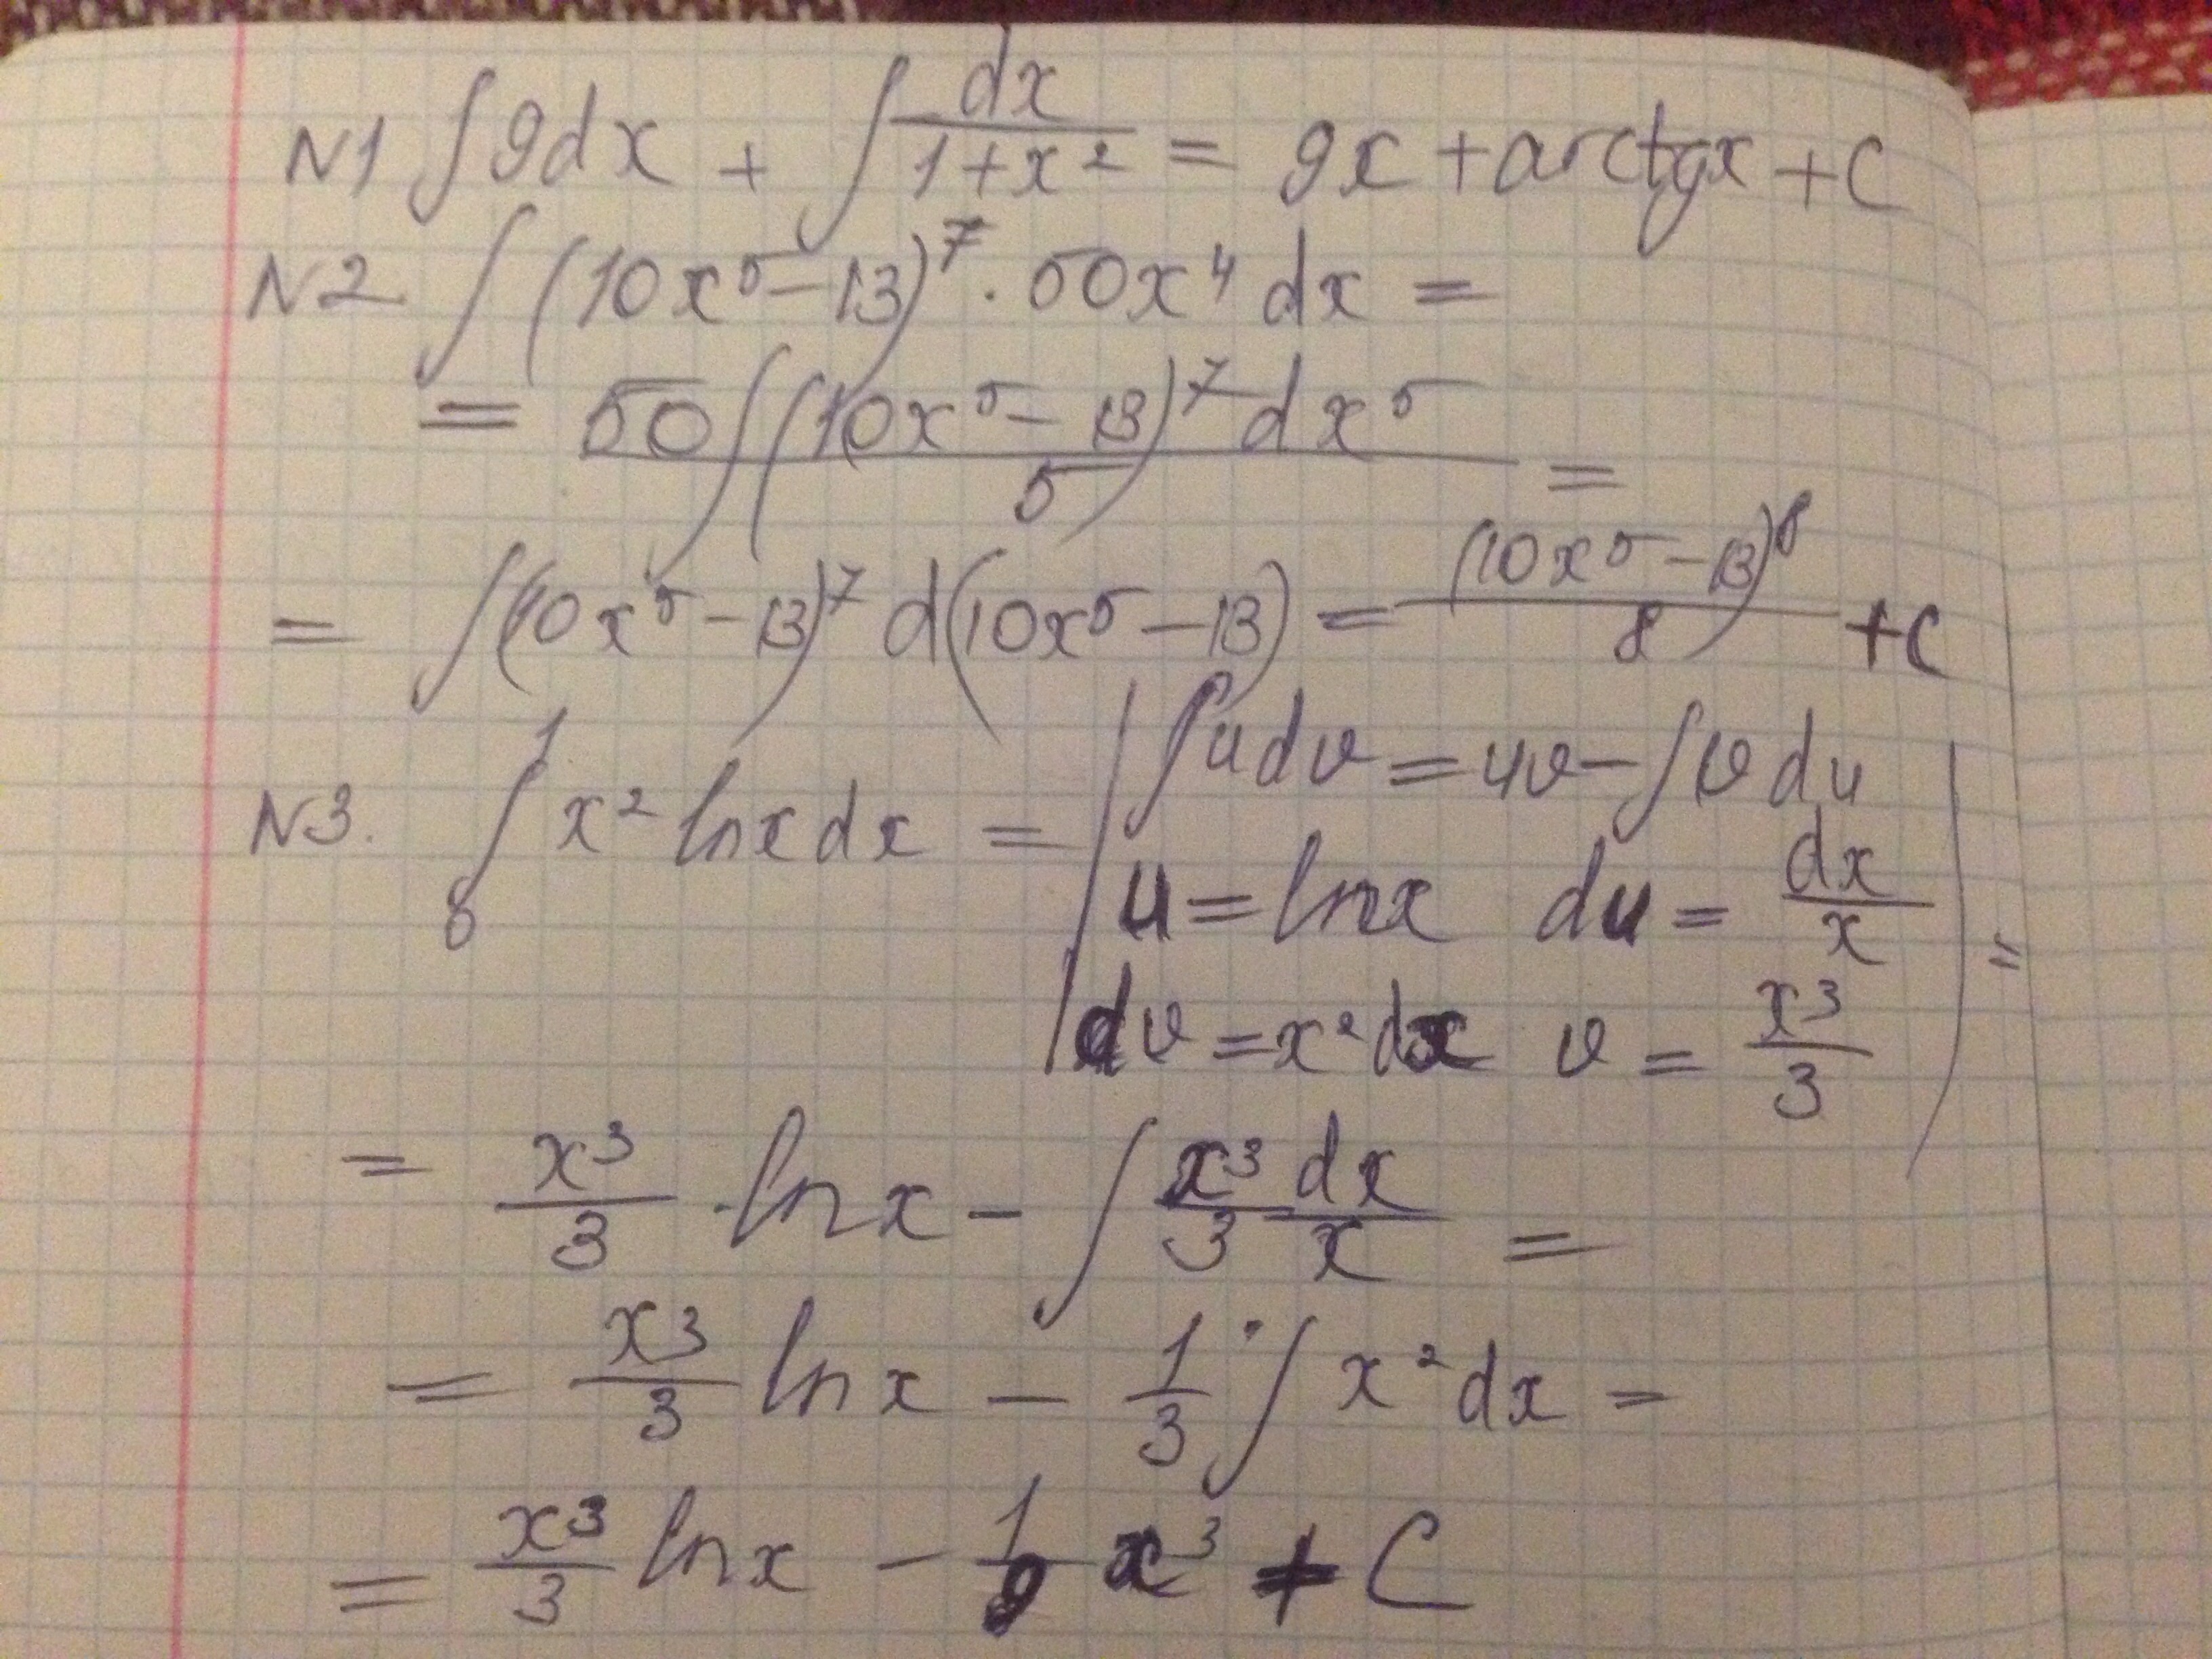 N1 ∫9dx + ∫dx/(1+x²) = 9x + arctgx + C
N2 ∫(10x⁵-13)⁷ · 50x⁴ dx =
= 50∫(10x⁵-13)⁷dx⁵/5 =
= ∫(10x⁵-13)⁷ d(10x⁵-13) = (10x⁵-13)⁸/8 + C
N3. ∫₀¹ x² lnx dx = | ∫udv = uv - ∫vdu
u = lnx du = dx/x
dv = x²dx v = x³/3 | =
= x³/3 · lnx - ∫ x³/3 dx/x =
= x³/3 lnx - 1/3 · ∫ x²dx =
= x³/3 lnx - 1/9 x³ + C